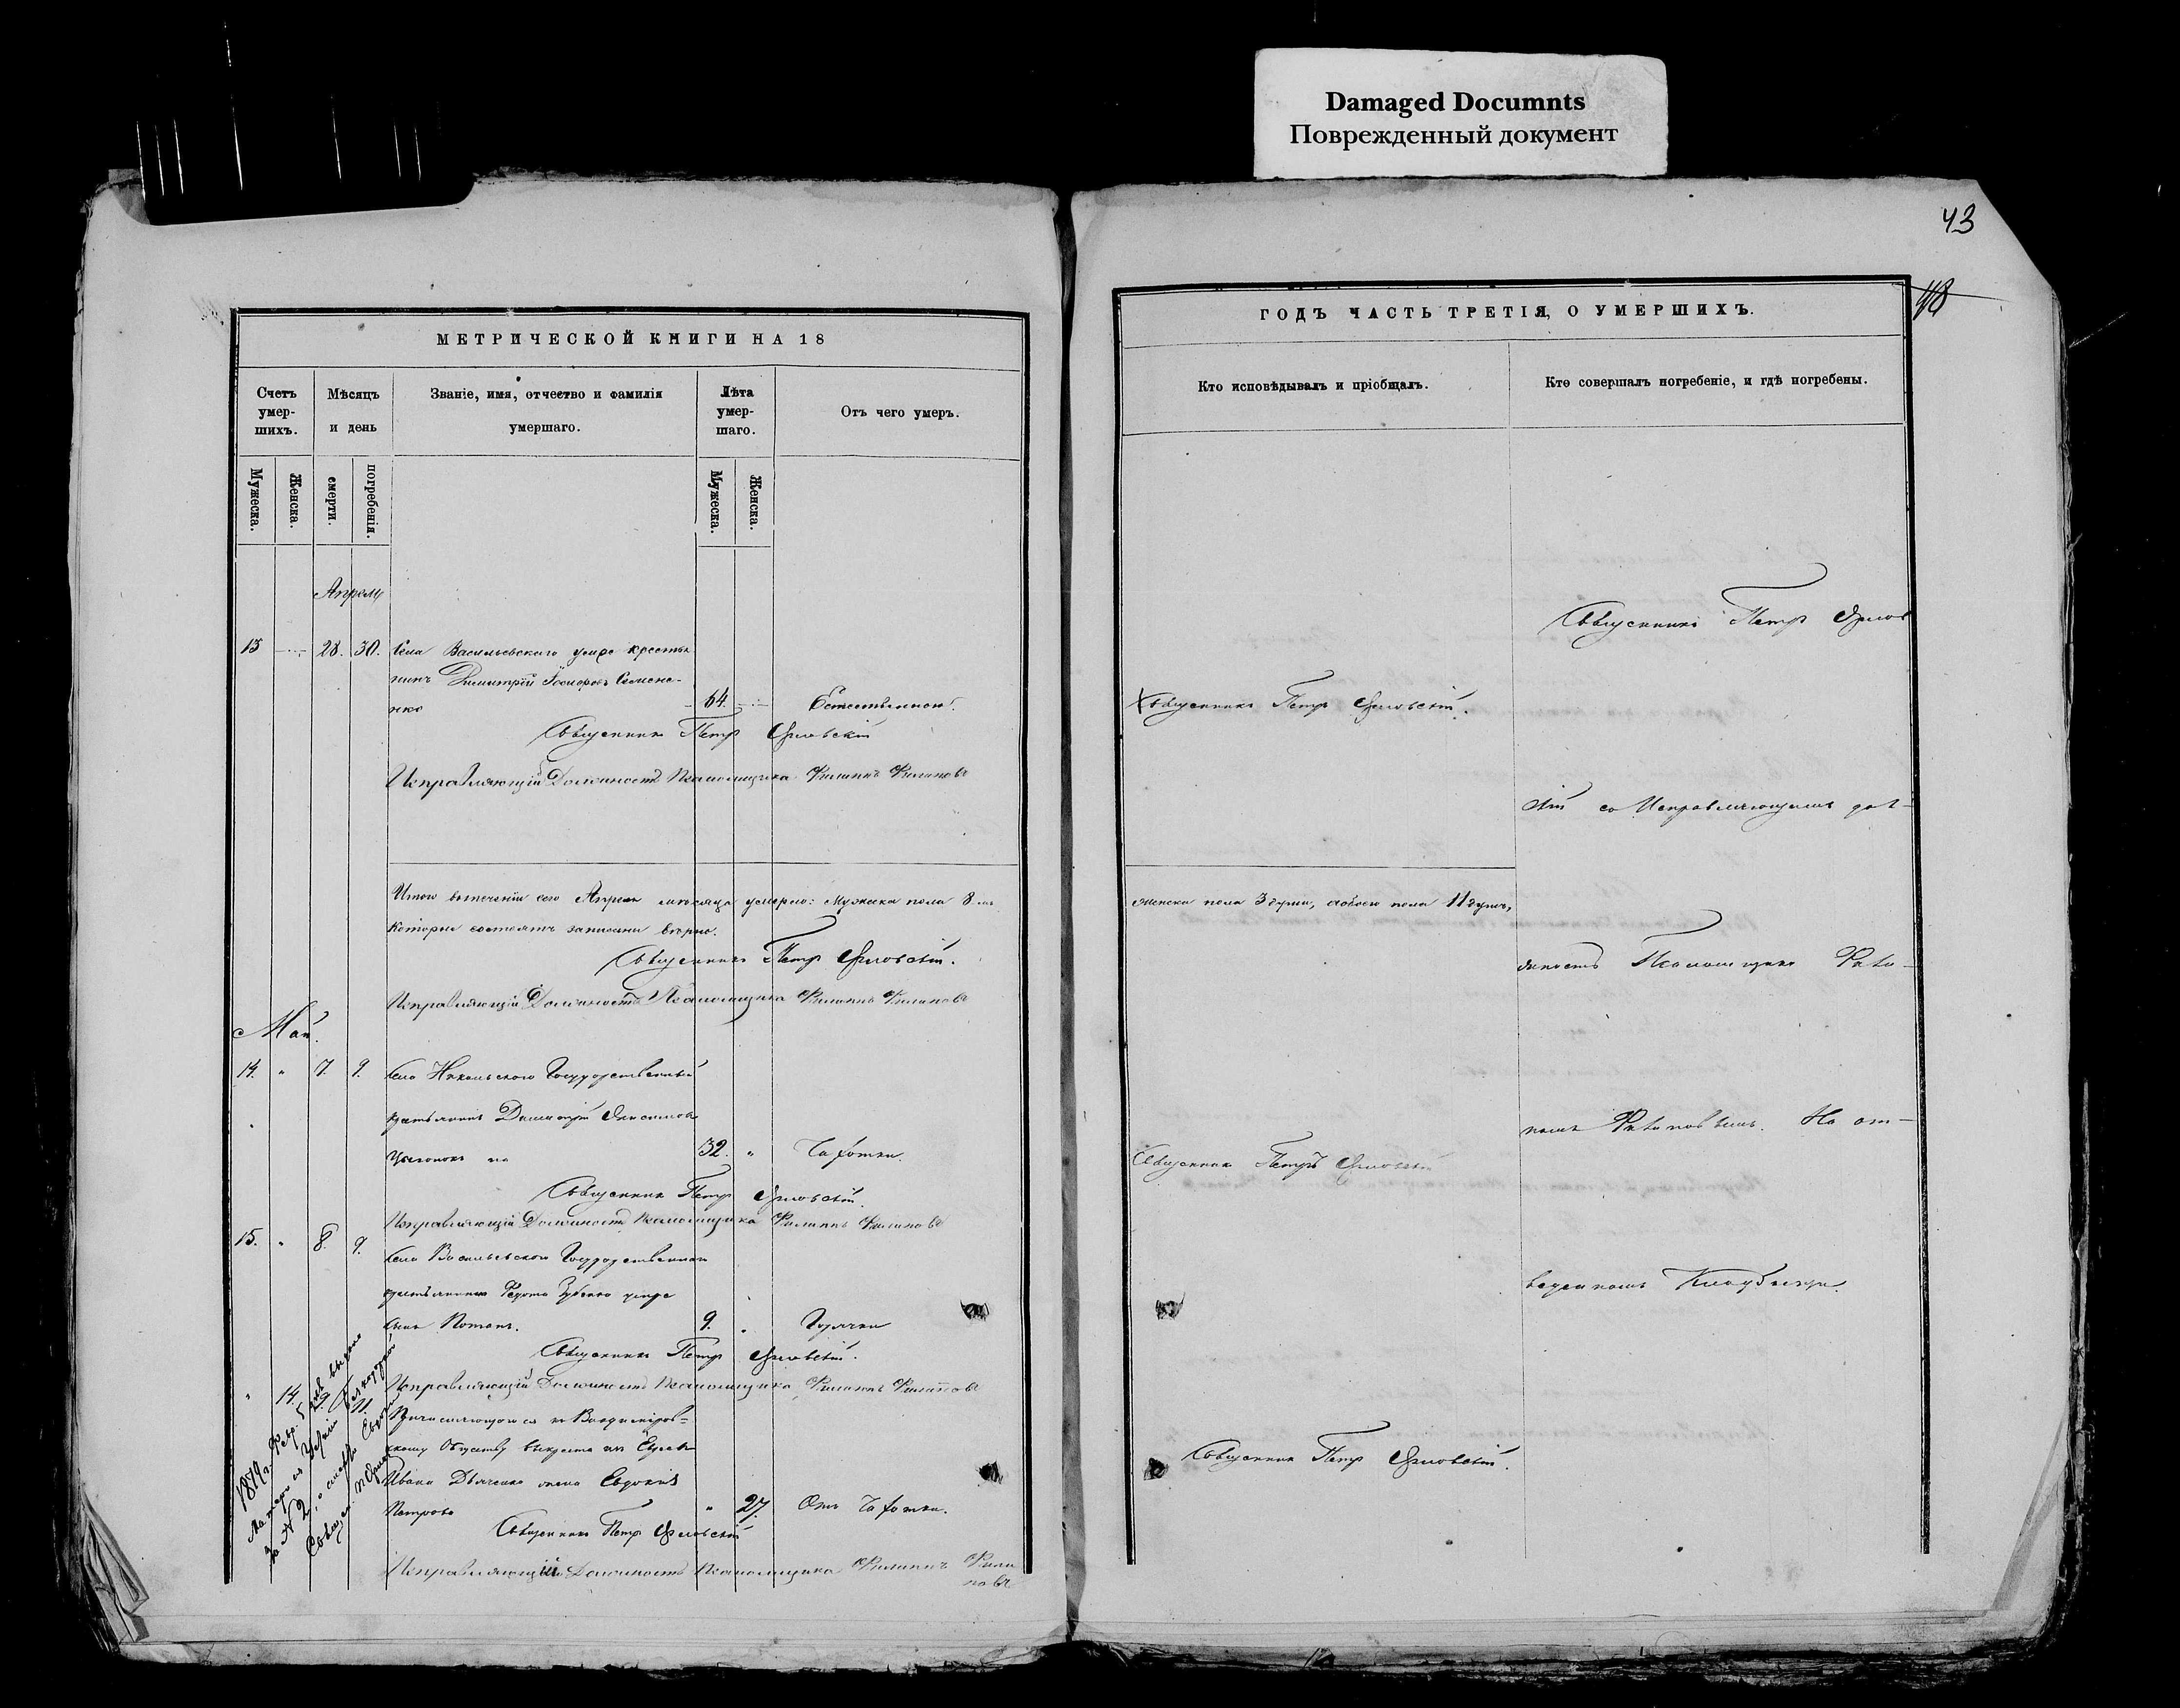 Damaged Documnts
Поврежденный документ
43
МЕТРИЧЕСКОЙ КНИГИ НА 18
Счетъ умер-шихъ.
Мѣсяцъ и день
Званіе, имя, отчество и фамилія умершаго.
Лѣта умер-шаго.
Отъ чего умеръ.
Мужеска.
Женска.
смерти.
погребенія.
Мужеска.
Женска.
Апрель
13 28. 30. Села Васильевскаго умре крестья
нинъ Димитрій Семене-
нко 64. Естественною.
Священникъ Петръ Орловскій
Исправляющій Должность Псаломщика Филиппъ Филиповъ
Итого втеченіи сего Апреля мѣсяца умерло: Мужеска пола 8
Которые состоятъ записаны вѣрно.
Священникъ Петръ Орловскій.
Исправляющій Должность Псаломщика Филиппъ Филиповъ
Май.
14. " 7. 9. Села Государственный
крестьянинъ Димитрій
32. " Чахотки.
Священникъ Петръ Орловскій.
Исправляющій Должность Псаломщика Филиппъ Филиповъ
15. " 8. 9. Села Васильевскаго Государственнаго
крестьянина Федота умре
сынъ Потапъ. 9. " Горячки
Священникъ Петръ Орловскій.
Исправляющій Должность Псаломщика Филиппъ Филиповъ
" 14. 9. 11. Причисляющогося к Владимиров-
скому Обществу выкреста изъ Евреевъ
Ивана Дьяченка жена Евдокия
Петрова " 27. Отъ Чахотки.
Священникъ Петръ Орловскій
Исправляющій Должность Псаломщика Филиппъ Фили
повъ
1879 г. Февр. 5 дня выдана
за N 2, о смерти Евдокіи
Свящ. П. Орловскій
ГОДЪ ЧАСТЬ ТРЕТІЯ, О УМЕРШИХЪ.
48
Кто исповѣдывалъ и пріобщалъ.
Кто совершалъ погребеніе, и гдѣ погребены.
Священникъ Петръ Орлов
Священникъ Петръ Орловскій.
скій со Исправляющимъ дол-
женска пола 3 души, обоего пола 11 душъ,
жность Псаломщика Фили-
помъ Филиповымъ. На от-
Священникъ Петръ Орловскій
веденномъ Кладбищи.
Священникъ Петръ Орловскій.